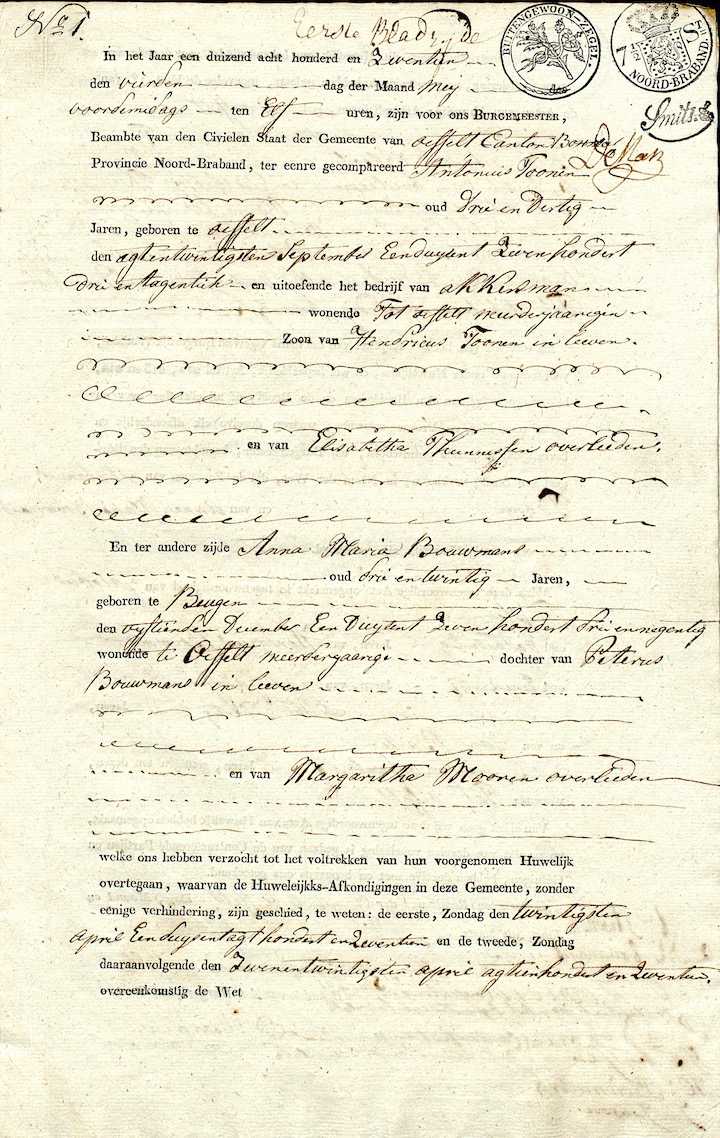 No. 1.
Eerste Bladzijde
BUITENGEWOON-ZEGEL
7 1/2 St.
NOORD-BRABAND
Smits
In het Jaar een duizend acht honderd en Zeventien
den vierden dag der Maand Mey
voordemidags ten Elf uren, zijn voor ons BURGEMEESTER,
Beambte van den Civielen Staat der Gemeente van oeffelt Canton
Provincie Noord-Braband, ter eenre gecompareerd Antonius Toonen
oud drie en Dertig
Jaren, geboren te oeffelt
den agtentwintigsten September Eenduyzent Zevenhondert
drie en tagentich en uitoefende het bedrijf van akkersman
wonende Tot oeffelt meerderjaarigen
Zoon van Hendricus Toonen in leeven.
en van Elisabetha Theunissen overleeden.
En ter andere zijde Anna Maria Bouwmans
oud drie entwintig Jaren,
geboren te Beugen
den vyftienden December Een Duyzent Zeven hondert drie en negentig
wonende te Oeffelt meerderjaarige dochter van Peterus
Bouwmans in leeven
en van Margaritha Mooren overleeden
welke ons hebben verzocht tot het voltrekken van hun voorgenomen Huwelijk
overtegaan, waarvan de Huweleijkks-Afkondigingen in deze Gemeente, zonder
eenige verhindering, zijn geschied, te weten: de eerste, Zondag den twintigsten
april Eenduysentagthondert en Zeventien en de tweede, Zondag
daaraanvolgende den Zevenentwintigsten april agtienhondert en Zeventien.
overeenkomstig de Wet